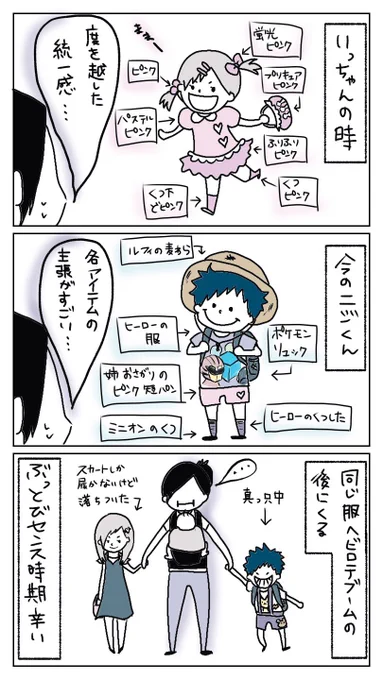 いっちゃんの時
蛍光
ピンク
プリキュア
ピンク
ふりふり
ピンク
くつ
ピンク
ピンク
パステル
ピンク
くつ下
どピンク
度を越した
統一感…
今の二ジくん
ルフィの麦わら
ポケモン
リュック
ヒーローのくつした
ヒーロー
の服
姉おさがりの
ピンク短パン
ミニオンのくつ
各アイテムの
主張がすごい…
同じ服ヘビロテブームの
後にくる
真っ只中
…
スカートしか
履かないけど
落ちついた
ぶっとびセンス時期辛い